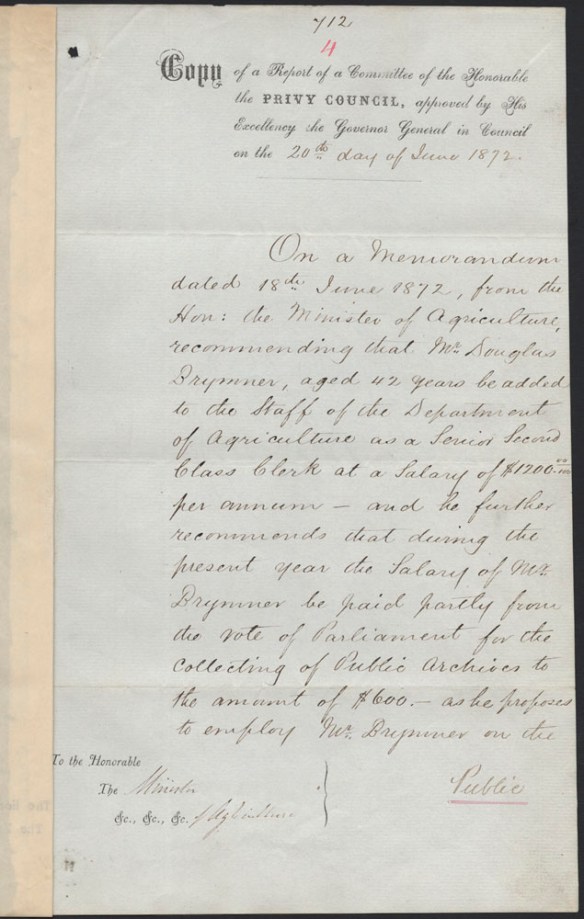 712
4
Copy of a Report of a Committee of the Honorable
the PRIVY COUNCIL, approved by His
Excellency the Governor General in Council
on the 20th day of June 1872.
On a Memorandum
dated 18th June 1872, from the
Hon: the Minister of Agriculture,
recommending that Mr. Douglas
Brymner, aged 42 years be added
to the Staff of the Department
of Agriculture as a Senior Second
Class Clerk at a Salary of $1200.
per annum – and he further
recommends that during the
present year the Salary of Mr.
Brymner be paid partly from
the vote of Parliament for the
collecting of Public Archives to
the amount of $600.– as he proposes
to employ Mr. Brymner on the
Public
To the Honorable
The Minister
&c., &c., &c. of Agriculture